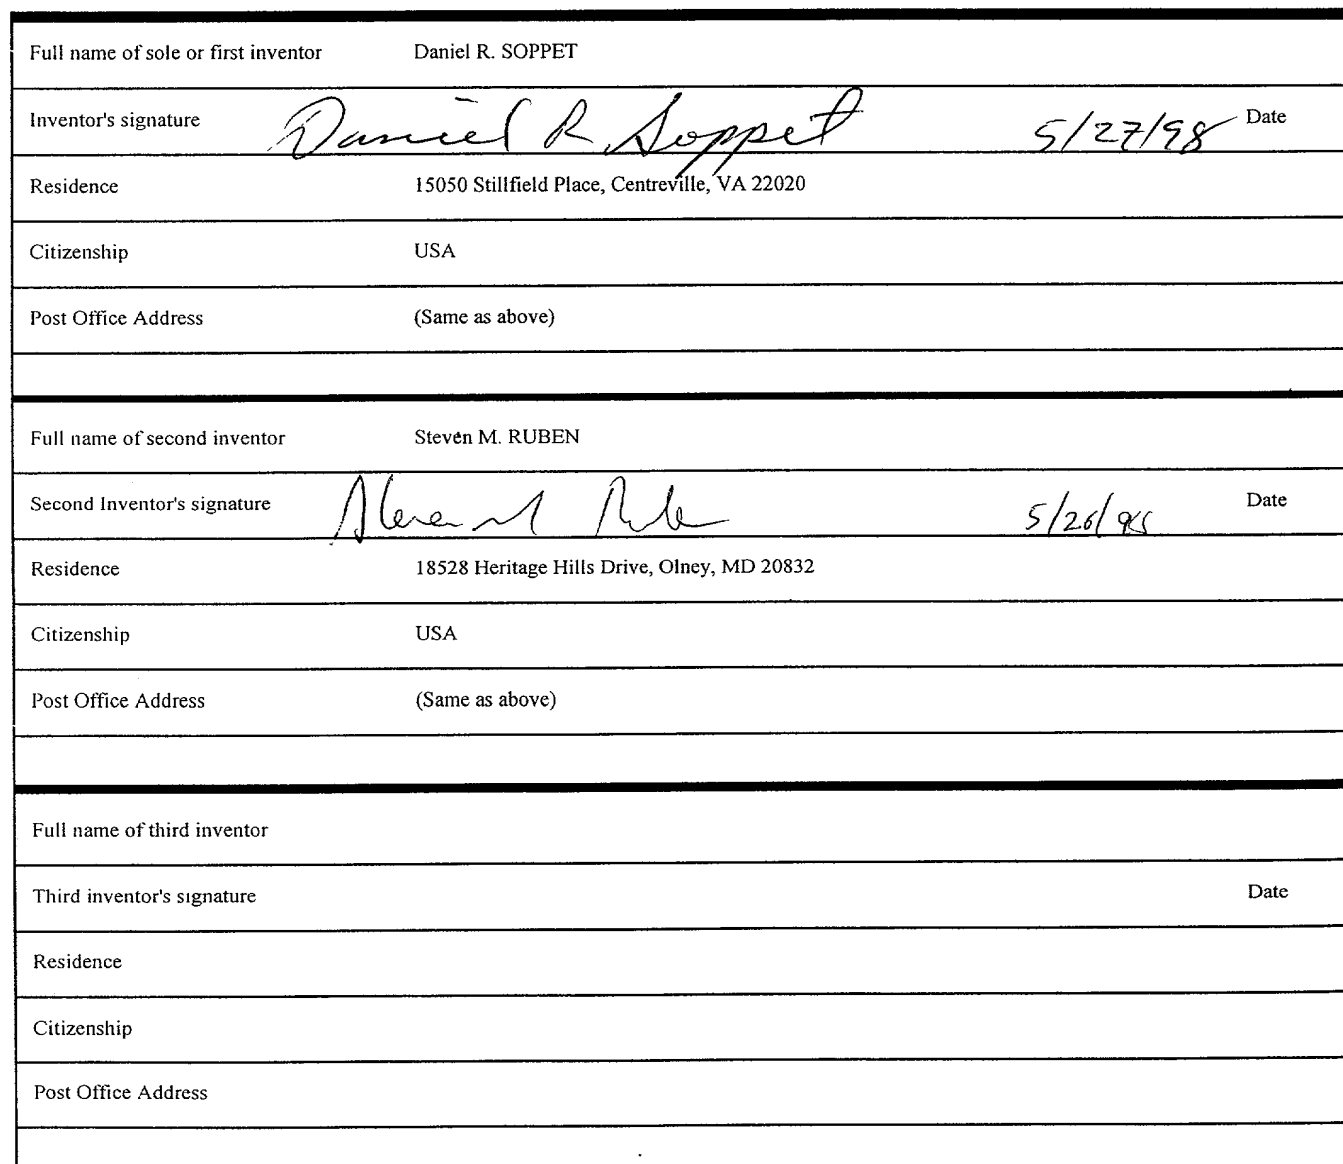 Full name of sole or first inventor Daniel R. SOPPET
Inventor's signature Daniel R. Soppet 5/27/98 Date
Residence 15050 Stillfield Place, Centreville, VA 22020
Citizenship USA
Post Office Address (Same as above)
Full name of second inventor Steven M. RUBEN
Second Inventor's signature Steven M Ruben 5/26/98 Date
Residence 18528 Heritage Hills Drive, Olney, MD 20832
Citizenship USA
Post Office Address (Same as above)
Full name of third inventor
Third inventor's signature Date
Residence
Citizenship
Post Office Address